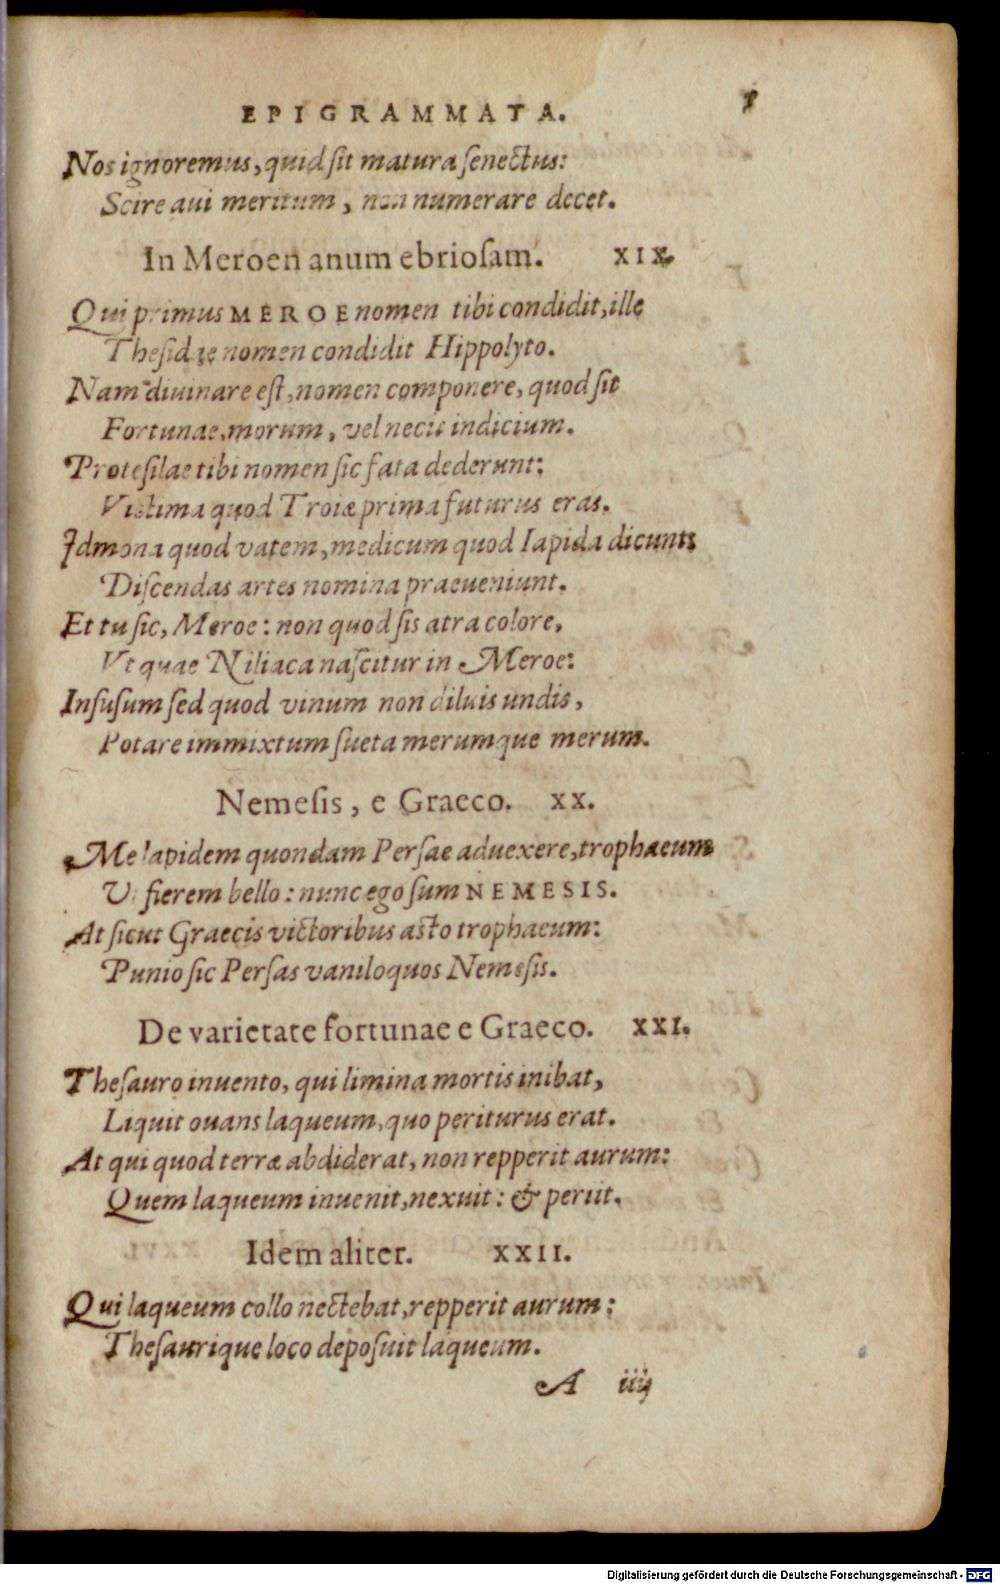 EPIGRAMMATA.
Nos ignoremus, quid sit matura senectus:
Scire aui meritum, non numerare decet.
In Meroen anum ebriosam. XIX.
Qui primus MEROE nomen tibi condidit, ille
Thesidae nomen condidit Hippolyto.
Nam diuinare est, nomen componere, quod sit
Fortunae, morum, vel necis indicium.
Protesilae tibi nomen sic fata dederunt:
Victima quod Troiæ prima futurus eras.
Idmona quod vatem, medicum quod Iapida dicunt:
Discendas artes nomina praeueniunt.
Et tu sic, Meroe: non quod sis atra colore,
Vt quae Niliaca nascitur in Meroe:
Infusum sed quod vinum non diluis undis,
Potare immixtum sueta merumque merum.
Nemesis, e Graeco. XX.
Me lapidem quondam Persae aduexere, trophaeum
Vt fierem bello: nunc ego sum NEMESIS.
At sicut Graecis victoribus asto trophaeum:
Punio sic Persas vaniloquos Nemesis.
De varietate fortunae e Graeco. XXI.
Thesauro inuento, qui limina mortis inibat,
Liquit ouans laqueum, quo periturus erat.
At qui quod terræ abdiderat, non repperit aurum:
Quem laqueum inuenit, nexuit: & periit.
Idem aliter. XXII.
Qui laqueum collo nectebat, repperit aurum:
Thesaurique loco deposuit laqueum.
A iiij
Digitalisierung gefördert durch die Deutsche Forschungsgemeinschaft - DFG